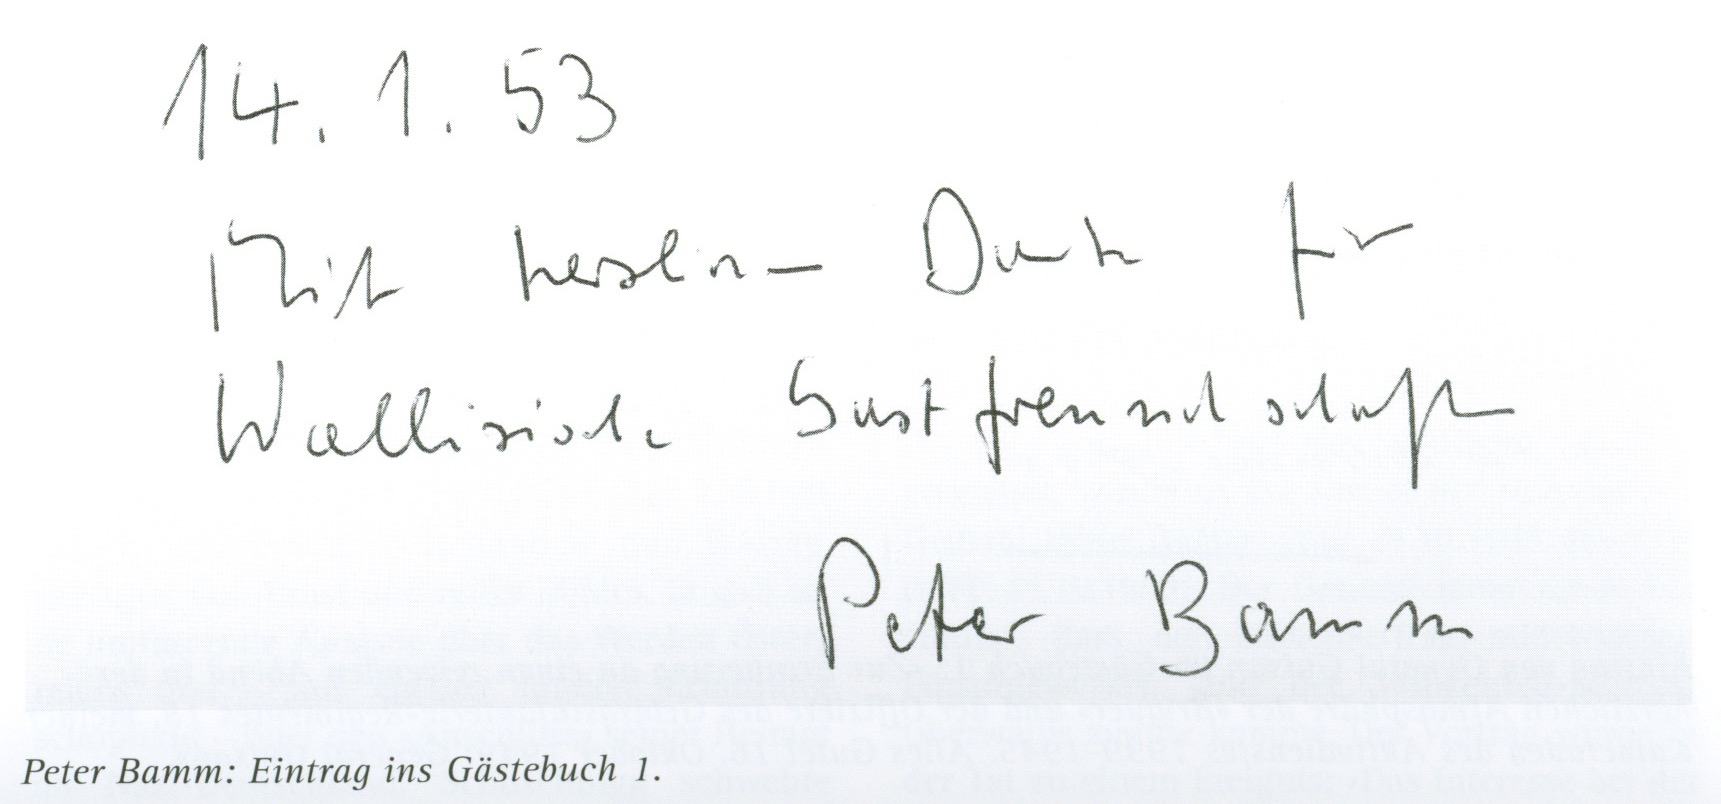 14. 1. 53
Mit herzlichen Dank für
Wallisische Gastfreundschaft
Peter Bamm
Peter Bamm: Eintrag ins Gästebuch 1.